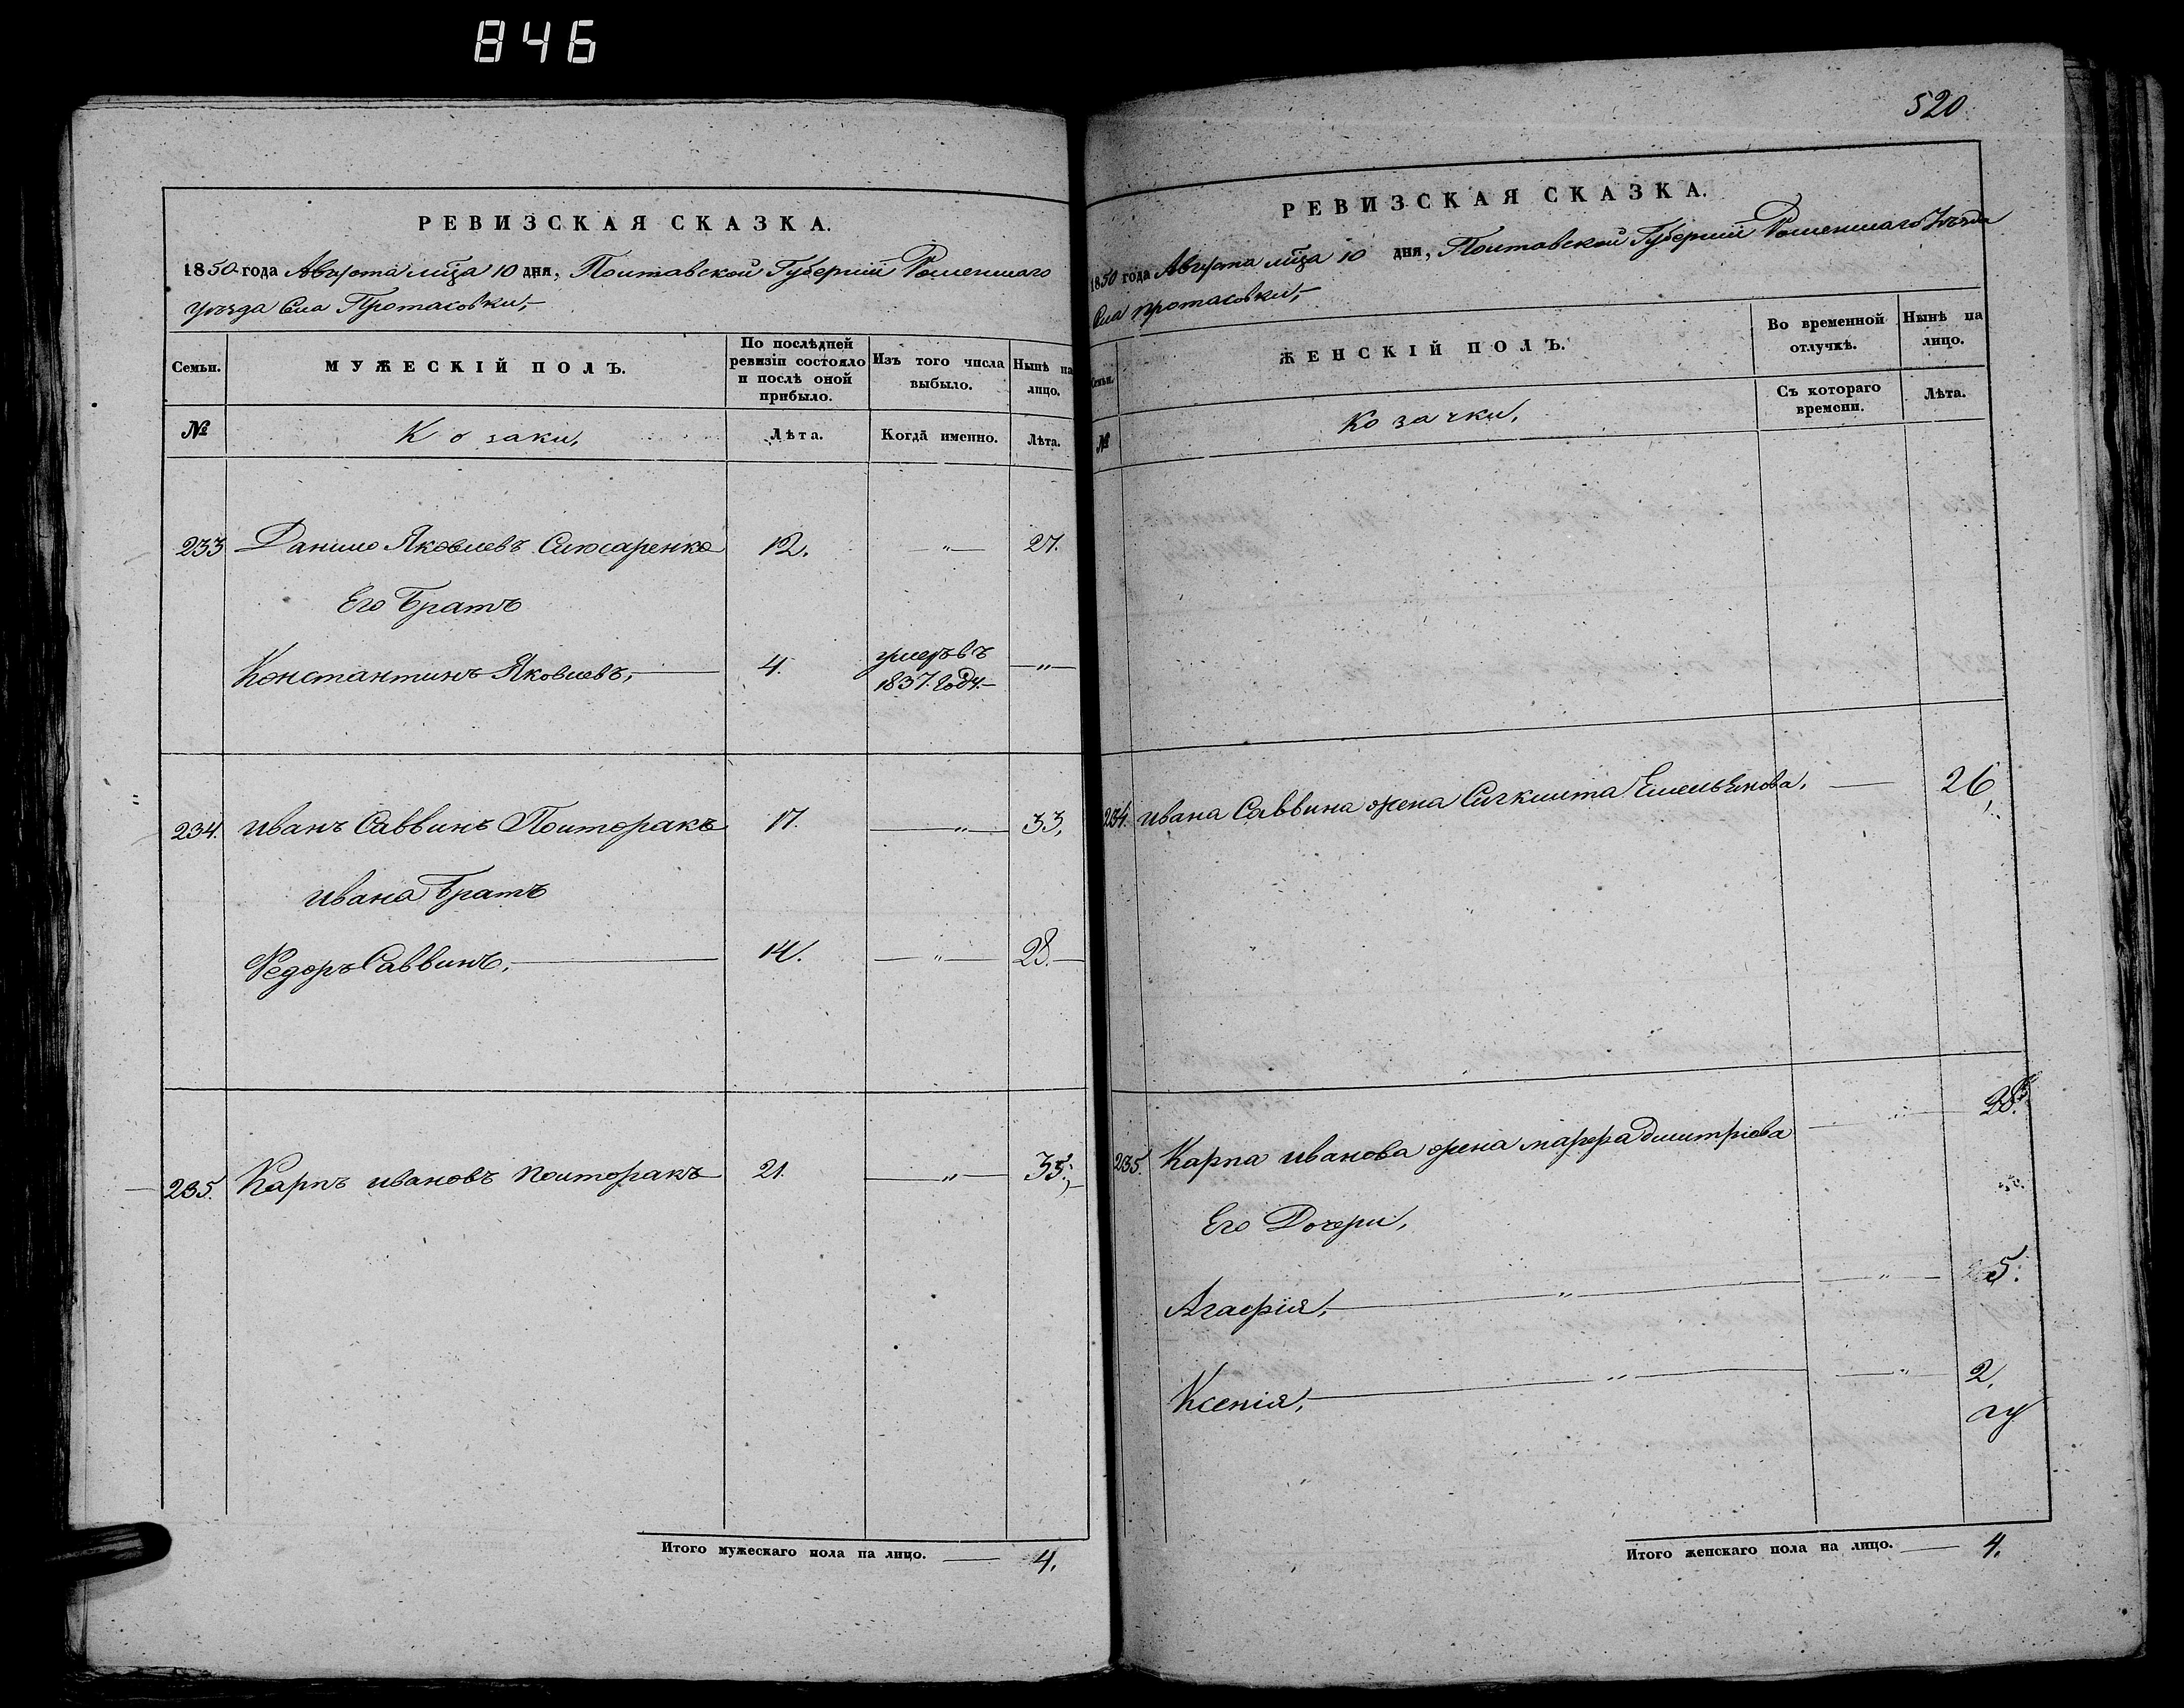 846
РЕВИЗСКАЯ СКАЗКА.
1850 года Августа мца 10 дня, Полтавской Губернии Роменшаго
уѣзда Сла Протасовки,
Семьи.
МУЖЕСКІЙ ПОЛЪ.
По послѣдней ревизіи состояло и послѣ оной прибыло.
Изъ того числа выбыло.
Нынѣ на лицо.
№
Козаки,
Лѣта.
Когда именно.
Лѣта.
233 Данило Яковлевъ Слюсаренко 12. — " — 27.
Его Братъ
Константинъ Яковлевъ, — 4. умеръ въ 1837. Году. — " —
234. Иванъ Саввинъ Полторакъ 17. — " — 33,
Ивана Братъ
Федоръ Саввинъ, — 14. — " — 28. —
235. Карпъ Ивановъ Полторакъ 21. — " — 35.
Итого мужескаго пола на лицо. — 4.
520
РЕВИЗСКАЯ СКАЗКА.
1850 года Августа мца 10 дня, Полтавской Губернии Роменшаго Уѣзда
Сла Протасовки,
Семьи.
ЖЕНСКІЙ ПОЛЪ.
Во временной отлучкѣ.
Нынѣ на лицо.
№
Козачки,
Съ котораго времени.
Лѣта.
234. Ивана Саввина жена Емельянова, — 26,
235. Карпа Иванова жена Марфа Дмитріева — " — 38.
Его Дочери,
Агафія, — " — " — 5.
Ксенія, — " — " — 2.
Итого женскаго пола на лицо. — 4.